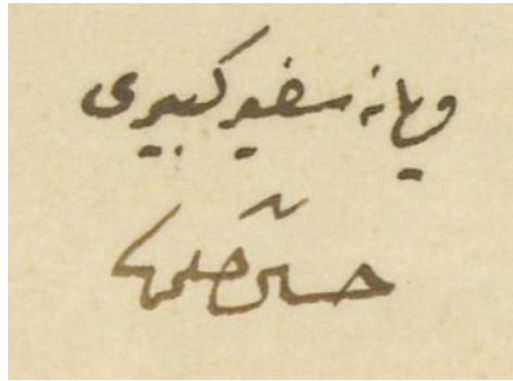 ویانه سفیر کبیری
حسین حلمی